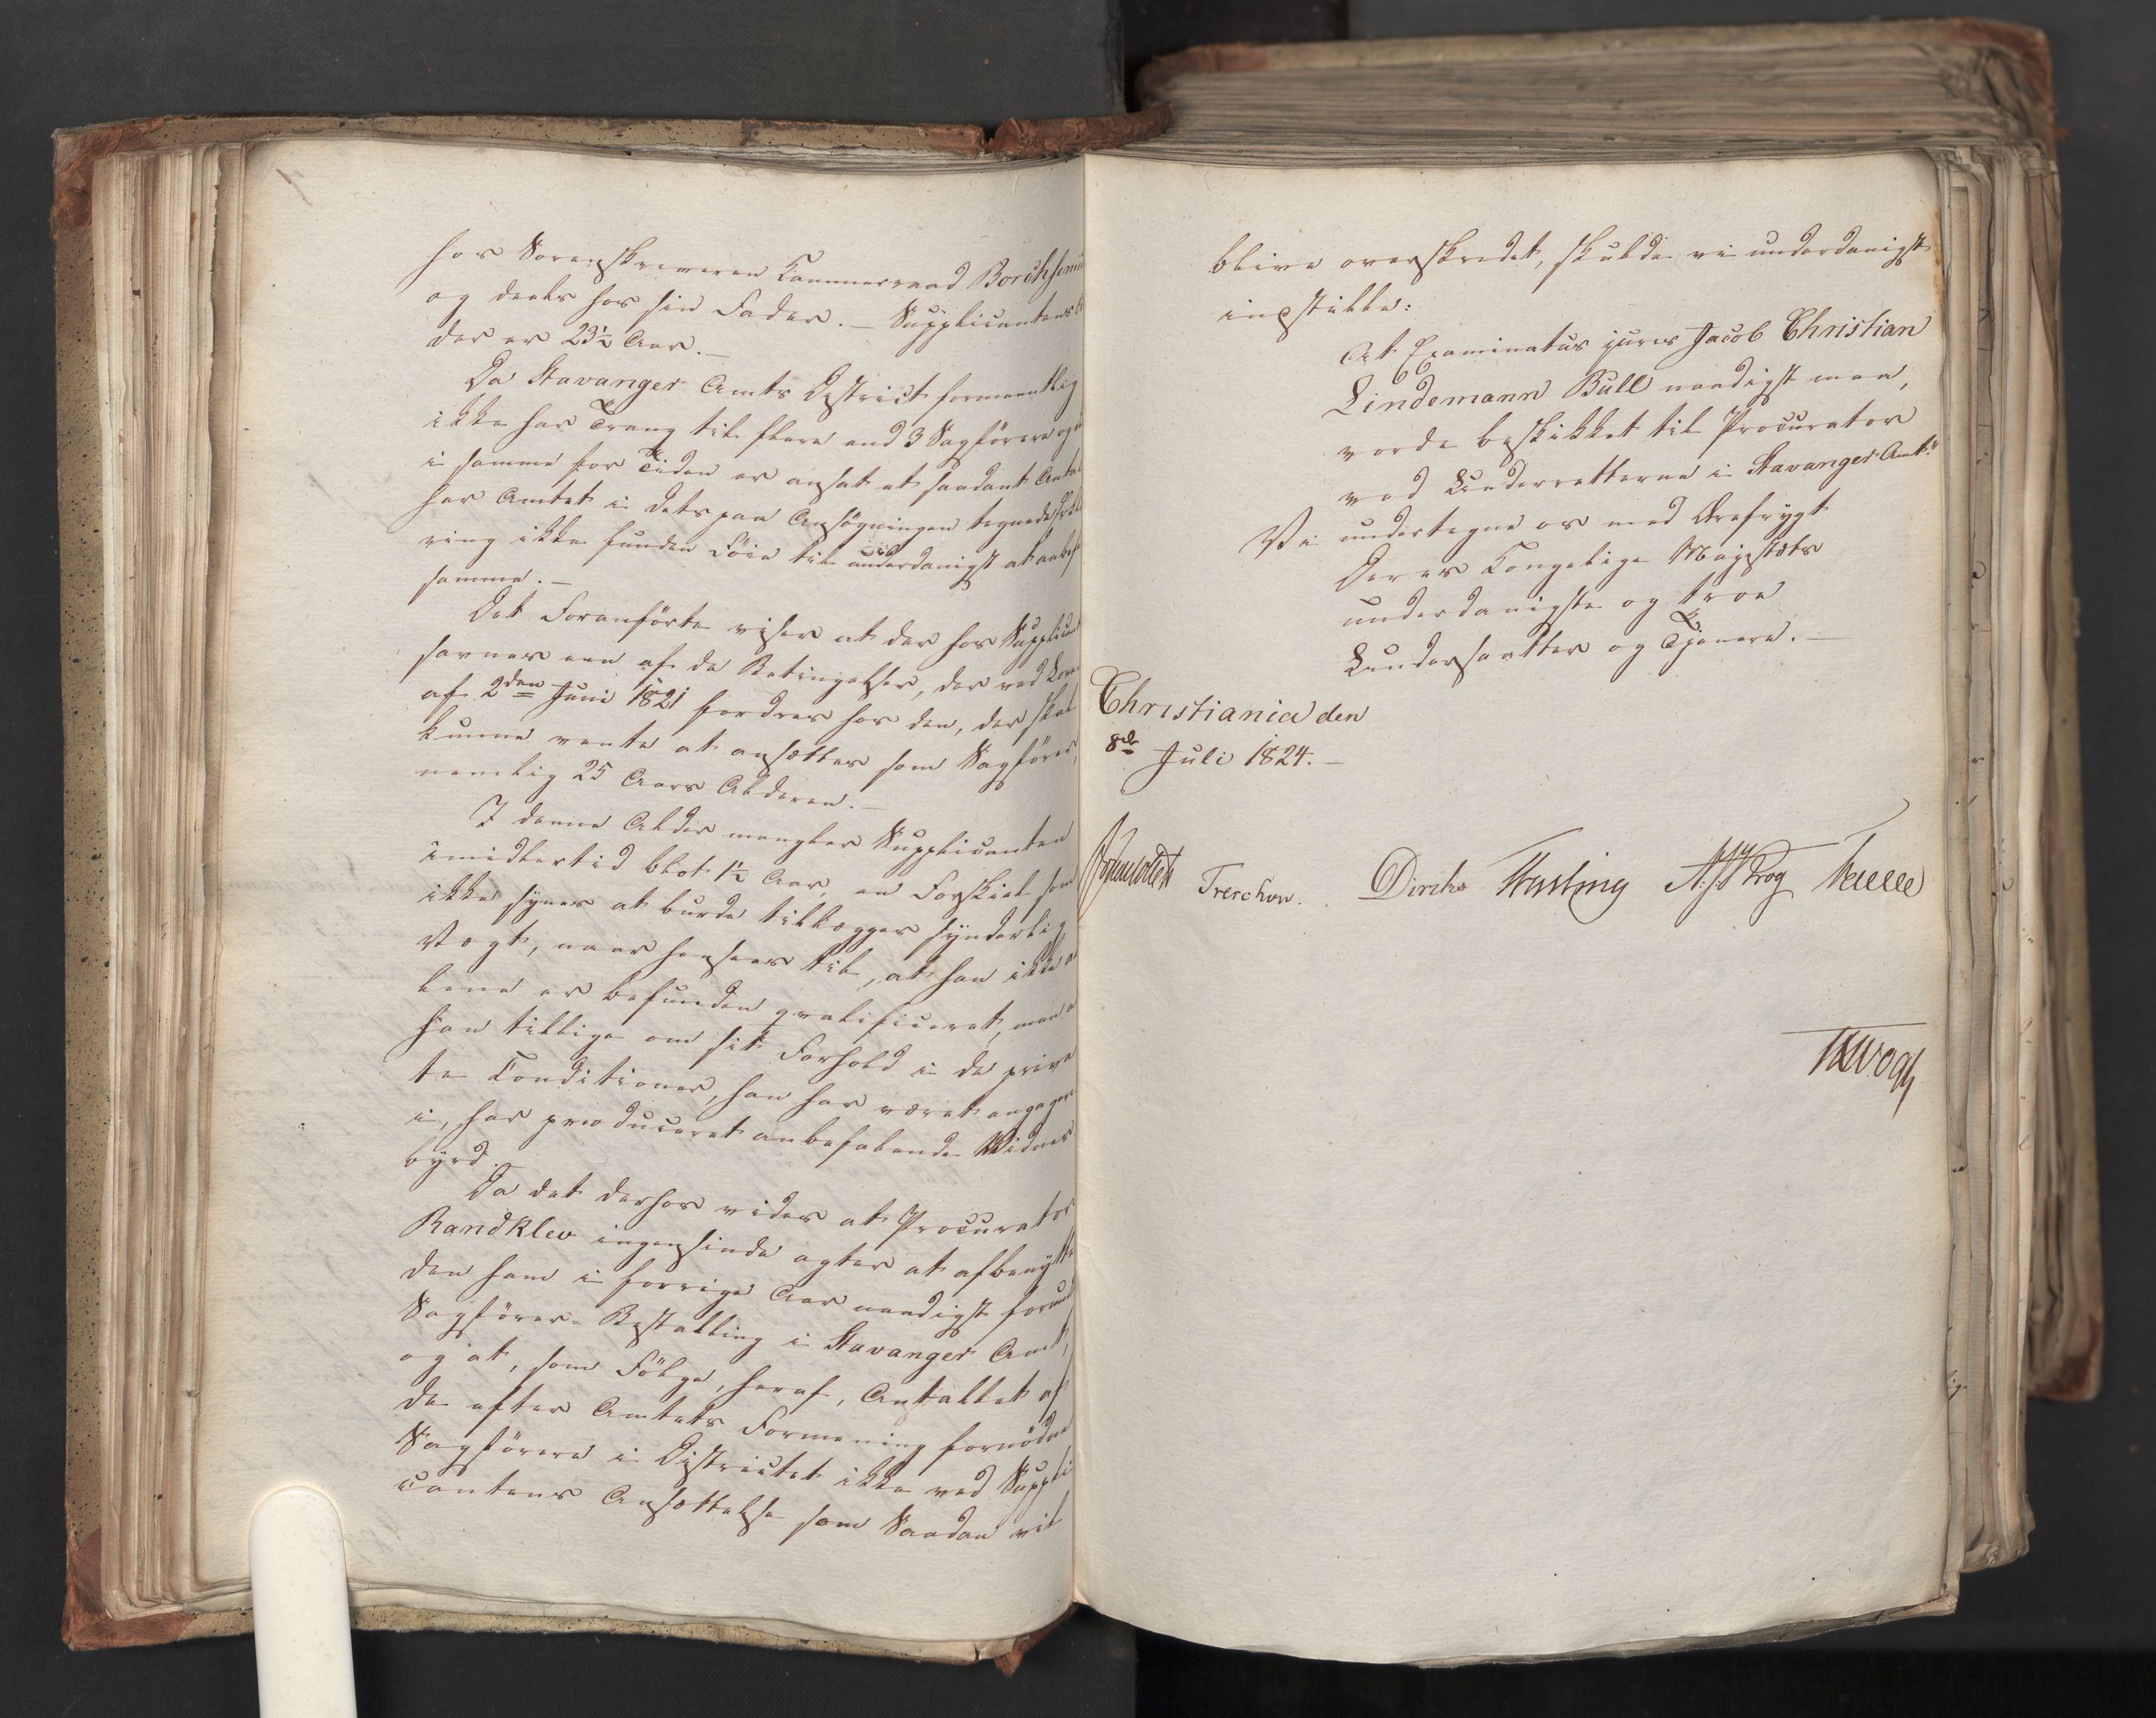 hos Sorenskriveren Kammerraad Borchseniu
og deels hos sin Fader. – Supplicantens Al
der er 23½ Aar. –
Da Stavanger Amts District formeentlig
ikke har Trang til flere end 3 Sagförere og der
i samme for Tiden er ansat et saadant Antal
har Amtet i dets paa Ansögningen tegnede Erklæ
ring ikke funden Föie til underdanigst at anbefale
samme. –
Det Foranförte viser at der hos Supplicanten
savnes een af de Betingelser, der ved Loven
af 2den Juni 1821 fordres hos den, der skal
kunne vente at ansættes som Sagförer,
nemlig 25 Aars Alderen. –
I denne Alder mangler Supplicanten
imidlertid blot 1½ Aar, en Forskiel som
ikke synes at burde tillægges synderlig
Vægt, naar henseees til, at han ikke a
lene er befunden qvalificeret, men a
han tillige om sit Forhold i de priva
te Conditioner, han har været engageret
i, har produceret anbefalende Vidnes
byrd.
Da det derhos vides at Procurator
Randklev ingensinde agter at afbenytte
den ham i forrige Aar naadigst forundte
Sagförer-Bestalling i Stavanger Amt,
og at, som Fölge, heraf, Antallet af
de efter Amtets Formening fornödne
Sagförere i Districtet ikke ved Suppli
cantens Ansættelse som Saadan vil
blive overskredet, skulde vi underdanigst
indstille:
At Examinatus juris Jacob Christian
Lindemann Bull naadigst maa,
vorde beskikket til Procurator
ved Underretterne i Stavanger Amt.
Vi undertegne os med Ærefrygt
Deres Kongelige Majestæts
underdanigste og troe
Undersaatter og Tjenere. –
Christiania den
8de Juli 1824. –
Treschow. Diriks Fasting Krog
Vogt